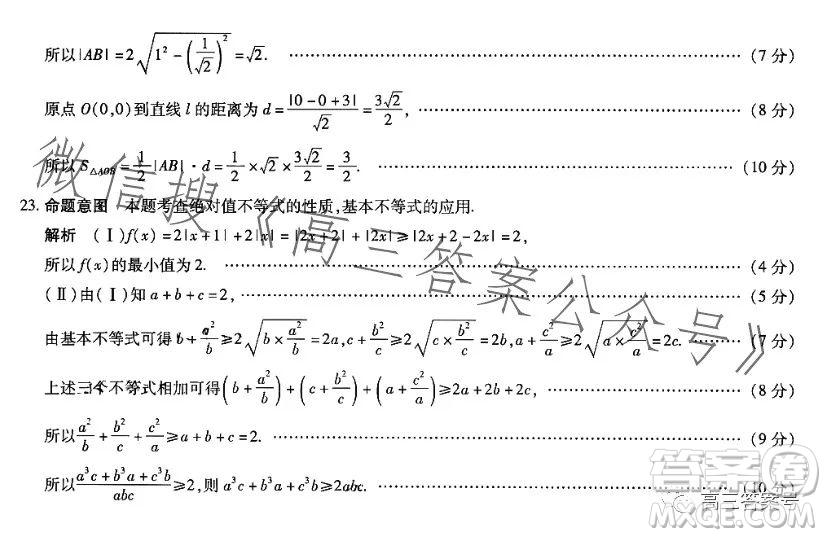 所以|AB|=2√(1²-(1/√2)²)=√2. (7分)
原点O(0,0)到直线l的距离为d=|0-0+3|/√2=3√2/2, (8分)
所以S△AOB=1/2|AB|·d=1/2×√2×3√2/2=3/2. (10分)
23. 命题意图 本题考查绝对值不等式的性质,基本不等式的应用.
解析 (Ⅰ)f(x)=2|x+1|+2|x|=|2x+2|+|2x|≥|2x+2-2x|=2,
所以f(x)的最小值为2. (4分)
(Ⅱ)由(Ⅰ)知a+b+c=2, (5分)
由基本不等式可得b+a²/b≥2√(b×a²/b)=2a,c+b²/c≥2√(c×b²/c)=2b,a+c²/a≥2√(a×c²/a)=2c. (7分)
上述三个不等式相加可得(b+a²/b)+(c+b²/c)+(a+c²/a)≥2a+2b+2c, (8分)
所以a²/b+b²/c+c²/a≥a+b+c=2. (9分)
所以(a³c+b³a+c³b)/abc≥2,则a³c+b³a+c³b≥2abc. (10分)
微信搜《高三答案公众号》
答案圈
高三答案号
MXQE.COM